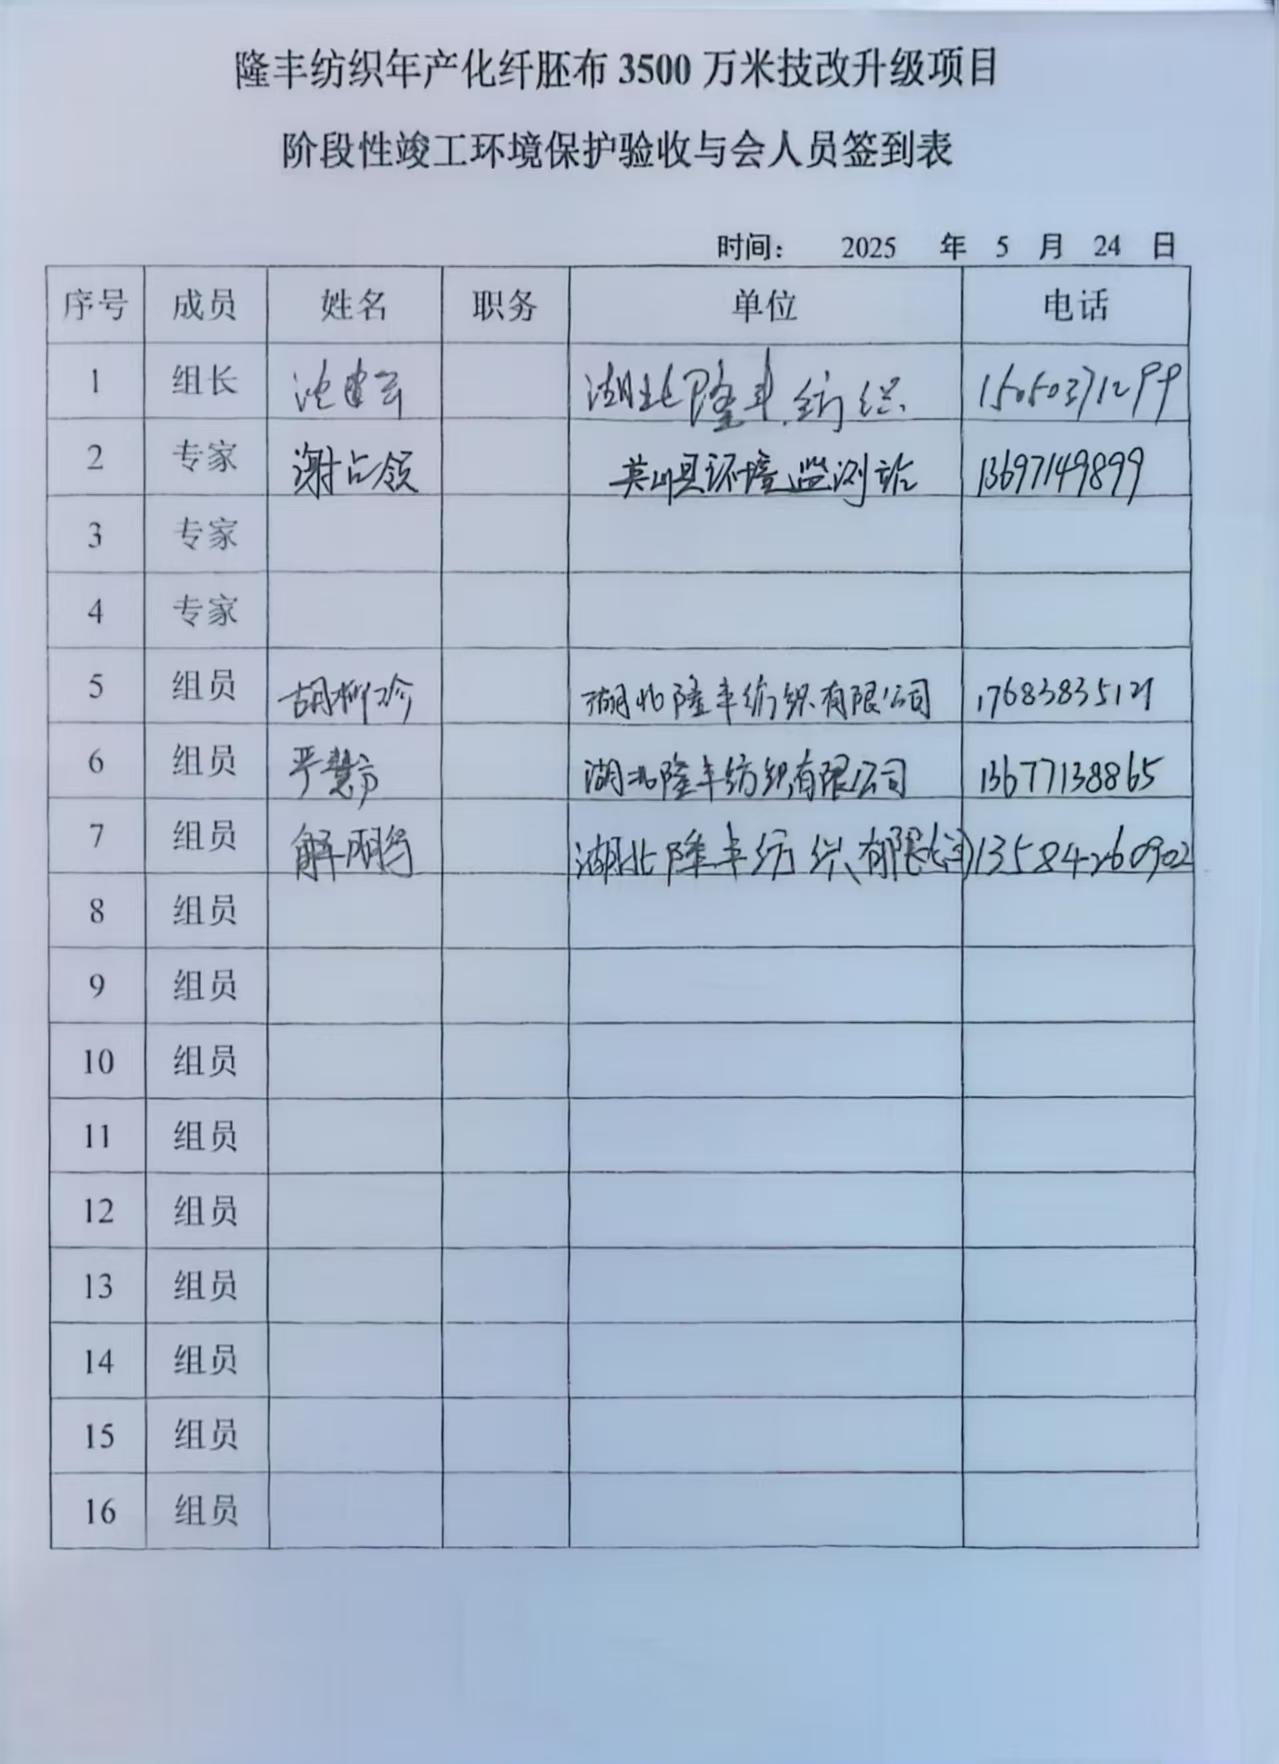 隆丰纺织年产化纤胚布 3500 万米技改升级项目
阶段性竣工环境保护验收与会人员签到表
时间： 2025 年 5 月 24 日
序号 成员 姓名 职务 单位 电话
1 组长 沈建云 湖北隆丰纺织 15050371299
2 专家 谢占领 英山县环境监测站 13697149899
3 专家
4 专家
5 组员 胡柳珍 湖北隆丰纺织有限公司
6 组员 严慧芳 湖北隆丰纺织有限公司 13677138865
7 组员 解 湖北隆丰纺织有限公司 13584260902
8 组员
9 组员
10 组员
11 组员
12 组员
13 组员
14 组员
15 组员
16 组员